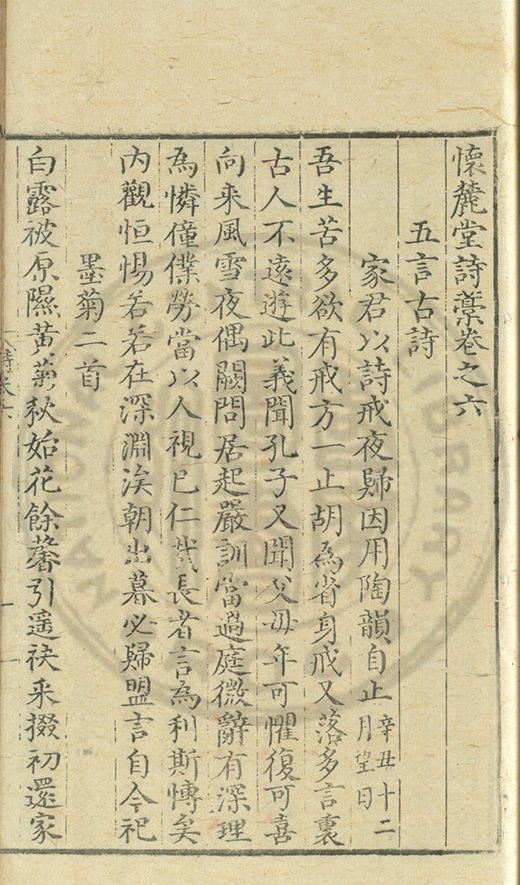 懷麓堂詩藁卷之六
五言古詩
家君以詩戒夜歸因用陶韻自止辛丑十二月望日
吾生苦多欲有戒方一止胡為省身戒又落多言裏
古人不遠遊此義聞孔子又聞父母年可懼復可喜
向来風雪夜偶闕問居起嚴訓當過庭微辭有深理
為憐僮僕勞當以人視已仁哉長者言為利斯慱矣
内觀恒惕若若在深淵涘朝出暮必歸盟言自今祀
墨菊二首
白露被原隰黃菊秋始花餘馨引遥袂采掇初還家
詩卷六
一